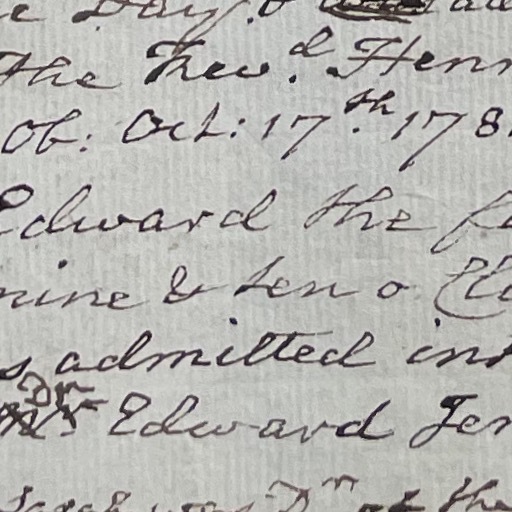 Day,
the Rev.d Henr
Ob: Oct: 17th. 178
Edward the
nine & ten o
admitted int
Dr Edward Jen
the